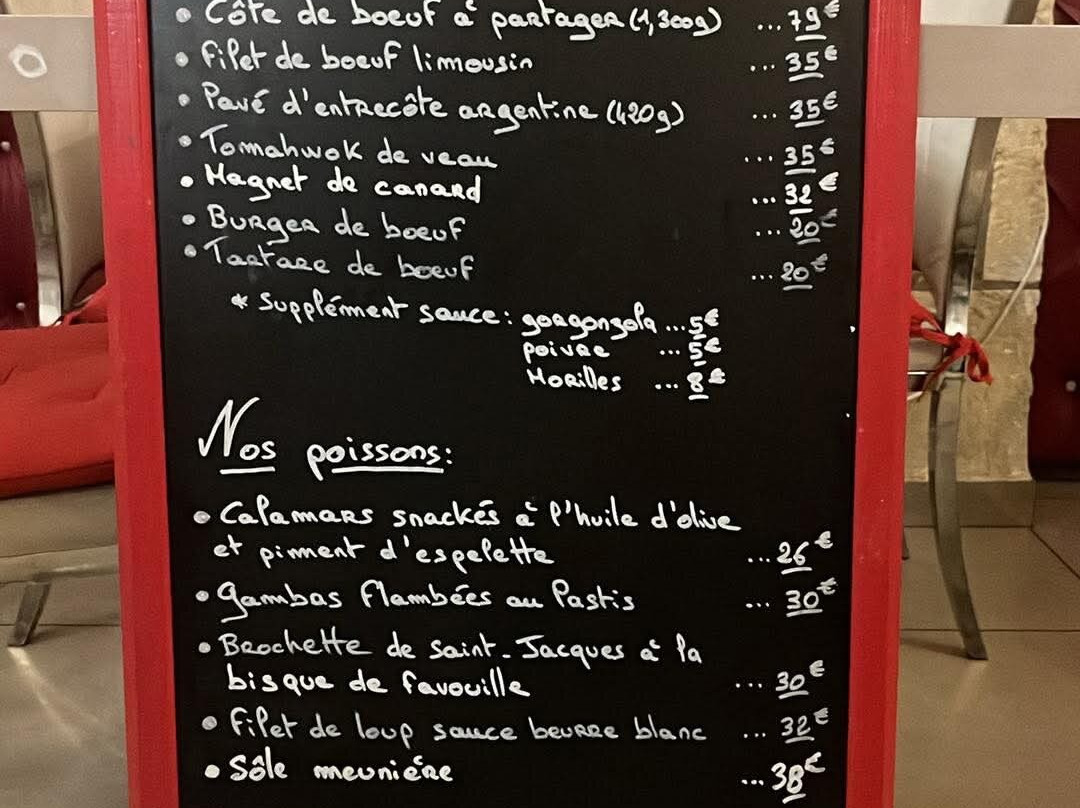 • Côte de boeuf à partager (1,300g) ...79€
• Filet de boeuf limousin ... 35€
• Pavé d'entrecôte argentine (420g) ... 35€
• Tommahwok de veau ... 35€
• Magret de canard ... 32€
• Burger de boeuf ... 20€
• Tartare de boeuf ... 20€
* Supplément sauce: gorgonzola ...5€
poivre ... 5€
Morilles ... 8€
Nos poissons:
• Calamars snackés à l'huile d'olive
et piment d'espelette ...26€
• gambas flambées au Pastis ... 30€
• Brochette de Saint-Jacques à la
bisque de favouille ... 30€
• Filet de loup sauce beurre blanc ... 32€
• Sôle meunière ...38€